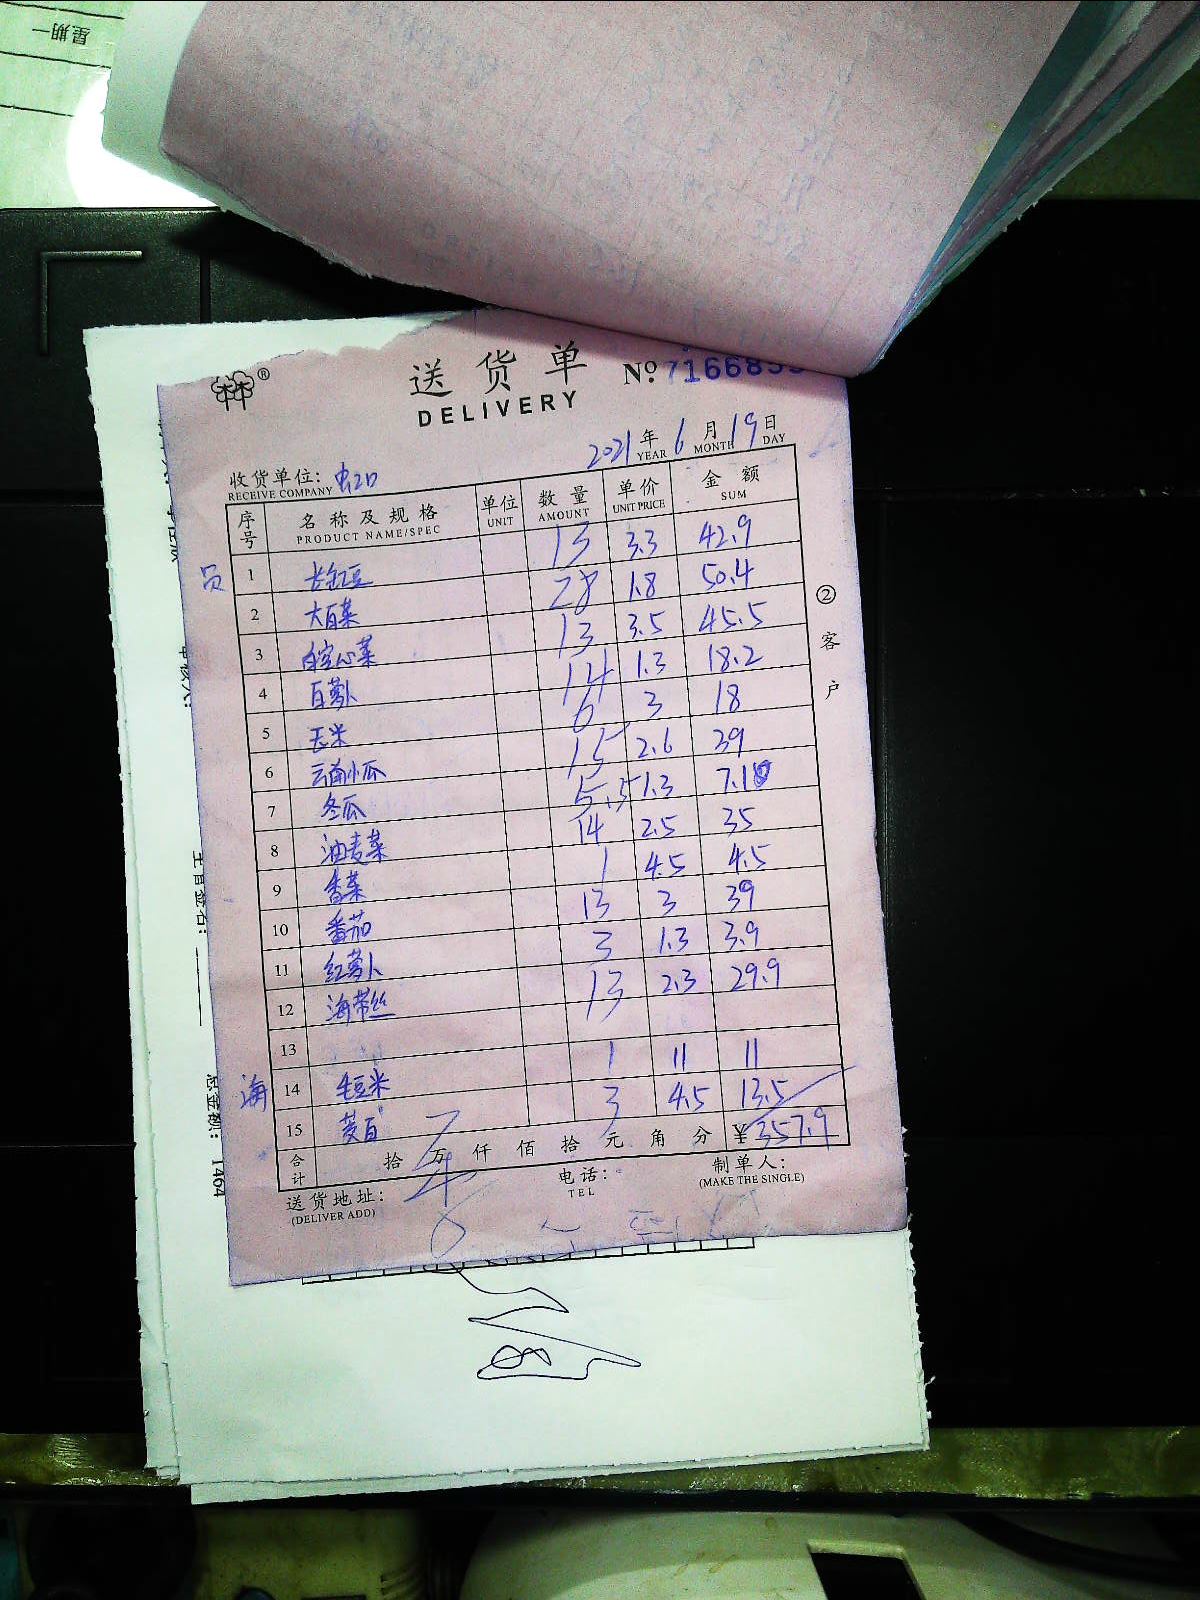 星期一
送货单
DELIVERY
№ 716685
2021年 6月 19日
YEAR MONTH DAY
收货单位: 虹口
RECEIVE COMPANY
序号 名称及规格 单位 数量 单价 金额
PRODUCT NAME/SPEC UNIT AMOUNT UNIT PRICE SUM
员 1 长豇豆 13 3.3 42.9
2 大白菜 28 1.8 50.4
3 白空心菜 13 3.5 45.5
4 白萝卜 14 1.3 18.2
5 玉米 6 3 18
6 云南小瓜 15 2.6 39
7 冬瓜 5.5 1.3 7.1
8 油麦菜 14 2.5 35
9 香菜 1 4.5 4.5
10 番茄 13 3 39
11 红萝卜 3 1.3 3.9
12 海带丝 13 2.3 29.9
13
海 14 毛豆米 1 11 11
15 茭白 3 4.5 13.5
合计 拾 万 仟 佰 拾 元 角 分 ¥ 357.9
送货地址: 电话: 制单人:
(DELIVER ADD) TEL (MAKE THE SINGLE)
② 客户
总金额: 1464